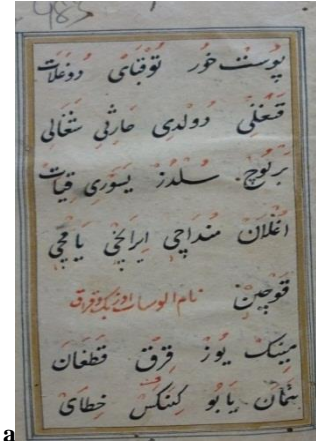 483
پوست خور توقبای دوغلات
قنغلی دولدی حارثی شغالی
برنوچ. سلدز یسوری قیات
اغلان منداچی ایرانچی یامچی
قوچین نام الوسات اوزبک و قزاق
مینک یوز قرق قطغان
یابو کنکس خطای
a